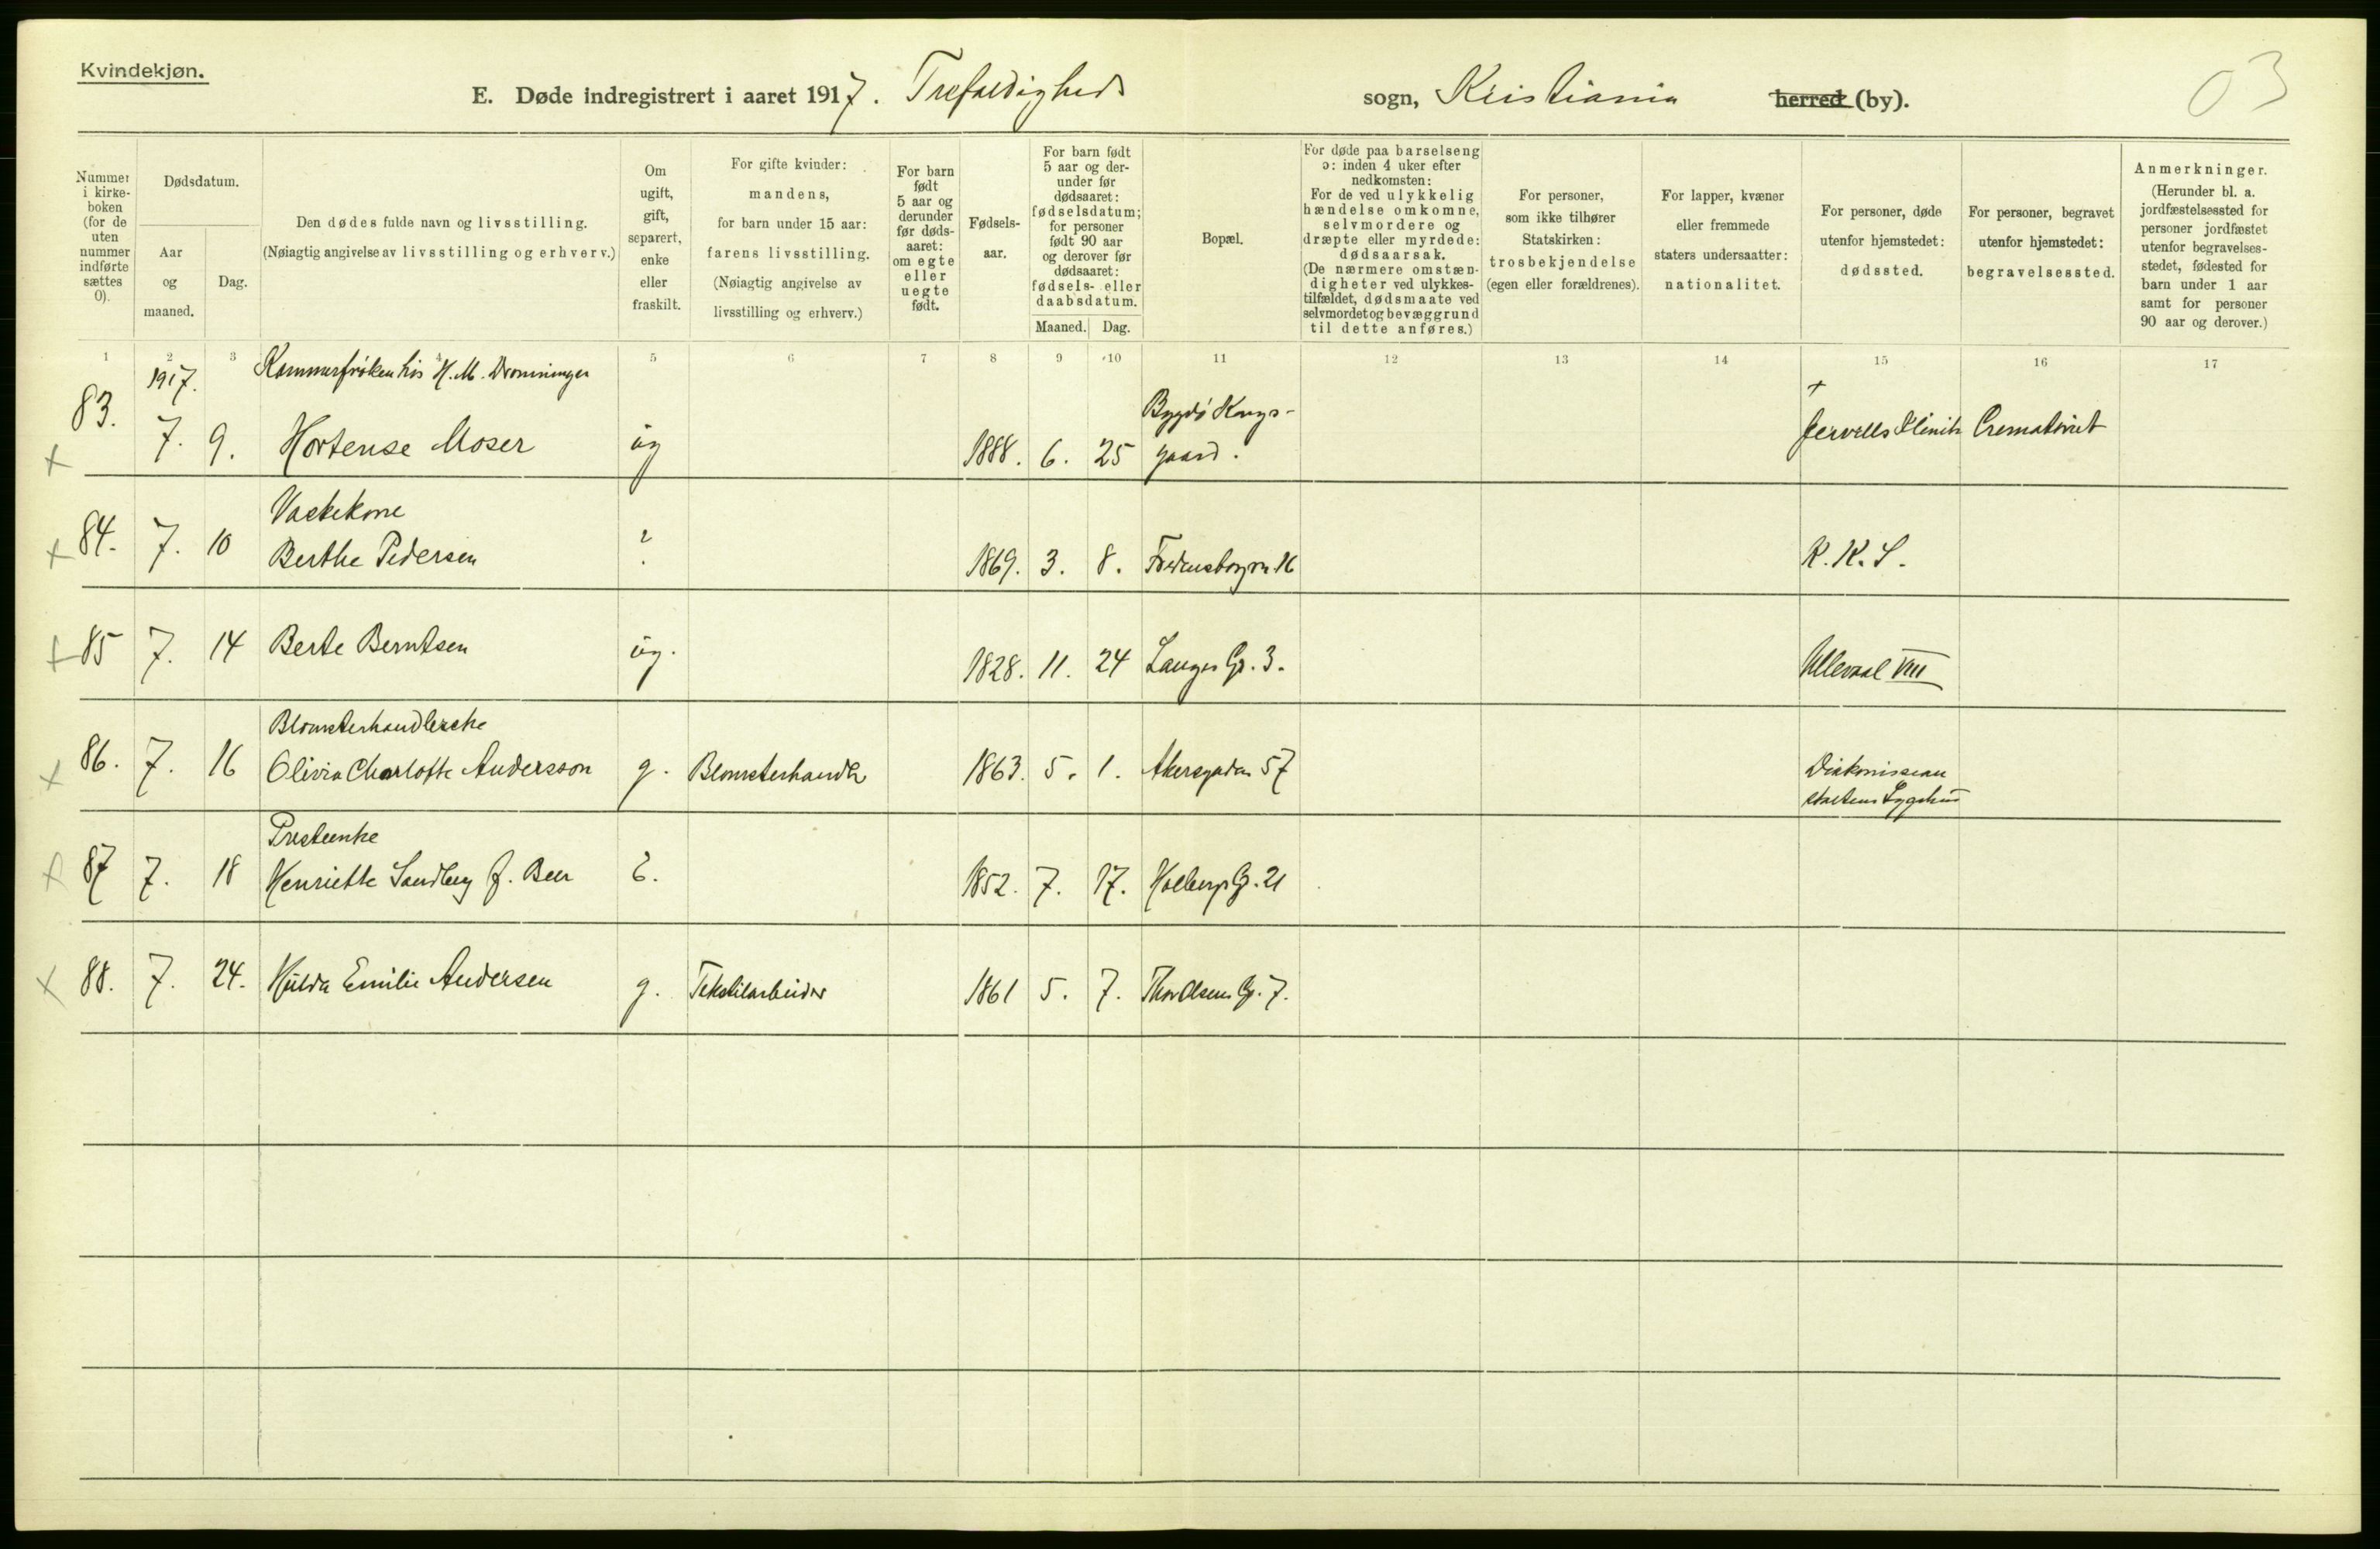 Kvindekjøn.
E. Døde indregistrert i aaret 1917. Trefoldigheds sogn, Kristiania herred (by).
03
Nummer i kirke-boken (for de uten nummer indførte sættes 0).
Dødsdatum.
Aar og maaned.
Dag.
Den dødes fulde navn og livsstilling.
(Nøiagtig angivelse av livsstilling og erhverv.)
Om ugift, gift, separert, enke eller fraskilt.
For gifte kvinder: mandens, for barn under 15 aar: farens livsstilling. (Nøiagtig angivelse av livsstilling og erhverv.)
For barn født 5 aar og derunder før døds-aaret: om egte eller uegte født.
Fødsels-aar.
For barn født 5 aar og der-under før dødsaaret: fødselsdatum; for personer født 90 aar og derover før dødsaaret: fødsels- eller daabsdatum.
Maaned. Dag.
Bopæl.
For døde paa barselseng ɔ: inden 4 uker efter nedkomsten: For de ved ulykkelig hændelse omkomne, selvmordere og dræpte eller myrdede: dødsaarsak. (De nærmere omstæn-digheter ved ulykkes-tilfældet, dødsmaate ved selvmordet og bevæggrund til dette anføres.)
For personer, som ikke tilhører Statskirken: trosbekjendelse (egen eller forældrenes).
For lapper, kvæner eller fremmede staters undersaatter: nationalitet.
For personer, døde utenfor hjemstedet: dødssted.
For personer, begravet utenfor hjemstedet: begravelsessted.
Anmerkninger. (Herunder bl. a. jordfæstelsessted for personer jordfæstet utenfor begravelses-stedet, fødested for barn under 1 aar samt for personer 90 aar og derover.)
1 2 3 4 5 6 7 8 9 10 11 12 13 14 15 16 17
1917. Kammerfrøken hos H. M. Dronningen
+
83. 7. 9. Hortense Moser ug 1888. 6. 25 Bygdø Kongs-gaard. Jervells Klinik Crematoriet
Vaskekone
84. 7. 10 Berthe Pedersen ? 1869. 3. 8. Fredensborgvn 16 K. K. S.
85 7. 14 Berte Berntsen ug. 1828. 11. 24 Langes G. 3. Ullevaal VIII
Blomsterhandlerske
86. 7. 16 Olivia Charlotte Andersson g. Blomsterhandler 1863. 5. 1. Akersgaden 57 Diakonissean
staltens Sygehus
Presteenke
87 7. 18 Henriette Sandberg f. Beer E. 1852. 7. 17. Holbergs G. 21
88. 7. 24. Hulda Emilie Andersen g. Tekstilarbeider 1861 5. 7. Thor Olsens G. 7.